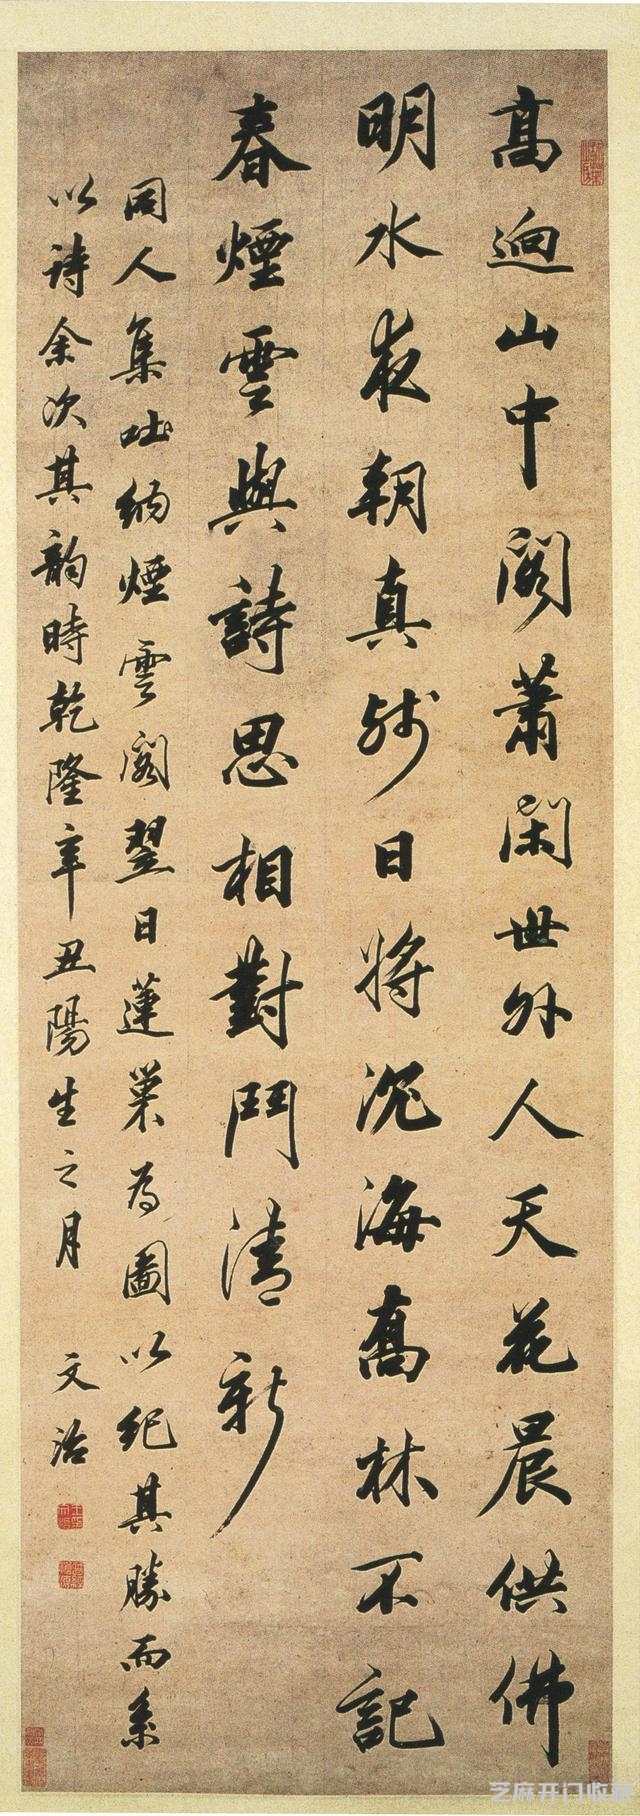 高迥山中閣蕭閑世外人天花晨供佛
明水夜朝真殘日將沉海高林不記
春煙雲與詩思相對鬥清新
同人集吐納煙雲閣翌日蓮巢為圖以紀其勝而系
以詩余次其韵時乾隆辛丑陽生之月 文治
芝麻开门收藏